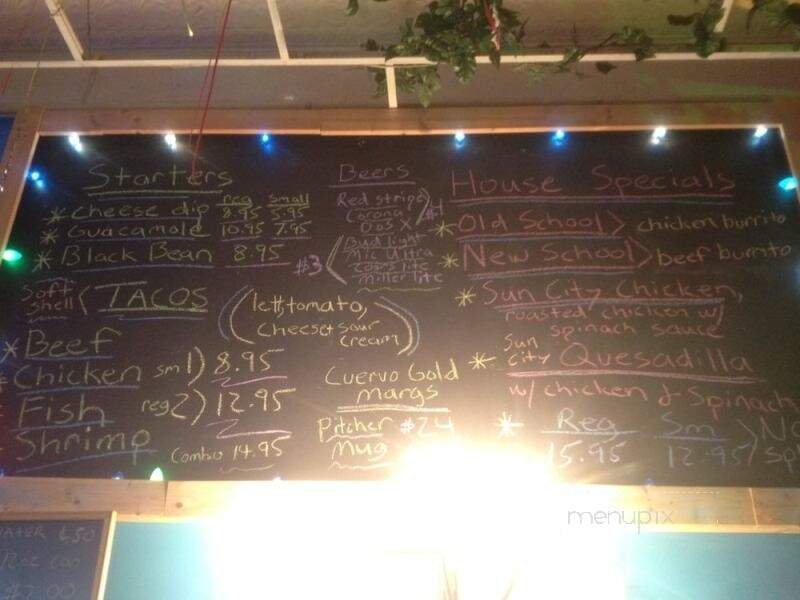 Starters
reg small
* Cheese dip 8.95 5.95
* Guacamole 10.95 7.95
* Black Bean 8.95
Soft shell < TACOS (lett, tomato, cheese + sour cream)
* Beef
* Chicken sm 1) 8.95
Fish reg 2) 12.95
Shrimp Combo 14.95
Beers
Red stripe
Corona
Dos X
#3 < Bud light
Mic Ultra
Coors lite
Miller lite
Cuervo Gold
Margs
Pitcher #24
Mug
House Specials
* Old School > chicken burrito
* New School > beef burrito
* Sun City Chicken,
roasted chicken w/
spinach sauce
* Sun City Quesadilla
w/ chicken & Spinach
* Reg Sm
15.95 12.95
menupix